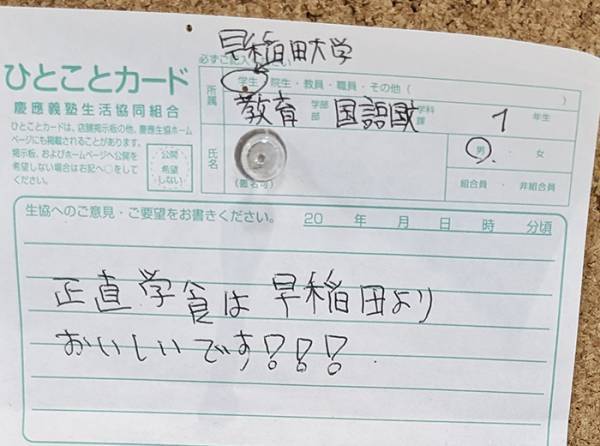 早稲田大学
必ずご記入ください
ひとことカード
慶應義塾生活協同組合
ひとことカードは、店舗掲示板の他、慶應生協ホーム
ページにも掲載されることがあります。
掲示板、およびホームページへ公開を
希望しない場合は右記へ○をして
ください。
公開
希望
しない
所属
学生・院生・教員・職員・その他( )
教育 学部 部 国語国文 学科 課 1 年生
氏名
(匿名可)
男・女
組合員・非組合員
生協へのご意見・ご要望をお書きください。 20 年 月 日 時 分頃
正直学食は早稲田より
おいしいです!!!